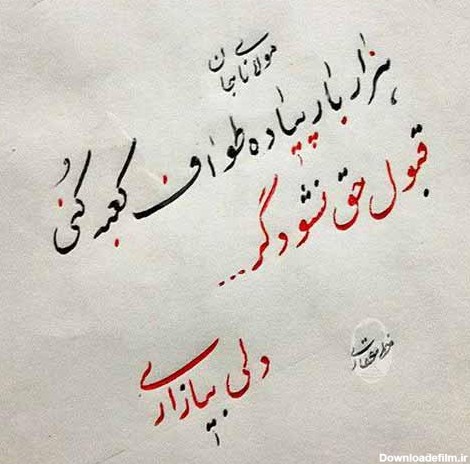 مولانای جان
هزار بار پیاده طواف کعبه کُنی
قبول حق نشود گر ...
دلی بیازاری
Downloadefilm.ir